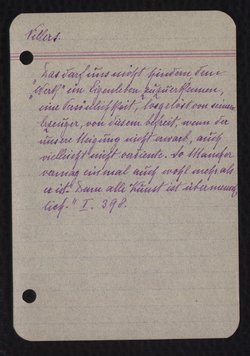 Villers.
Das darf uns nicht hindern dem
„Werk" ein Eigenleben zuzuerkennen,
eine Persönlichkeit, losgelöst von seinem
Erzeuger, von diesem befreit, wenn der
unsere Neigung nicht erwarb, auch
vielleicht nicht verdiente. So Mancher
vermag einmal auch wohl mehr als
er ist. Denn alle Kunst ist übermensch-
lich." I. 398.